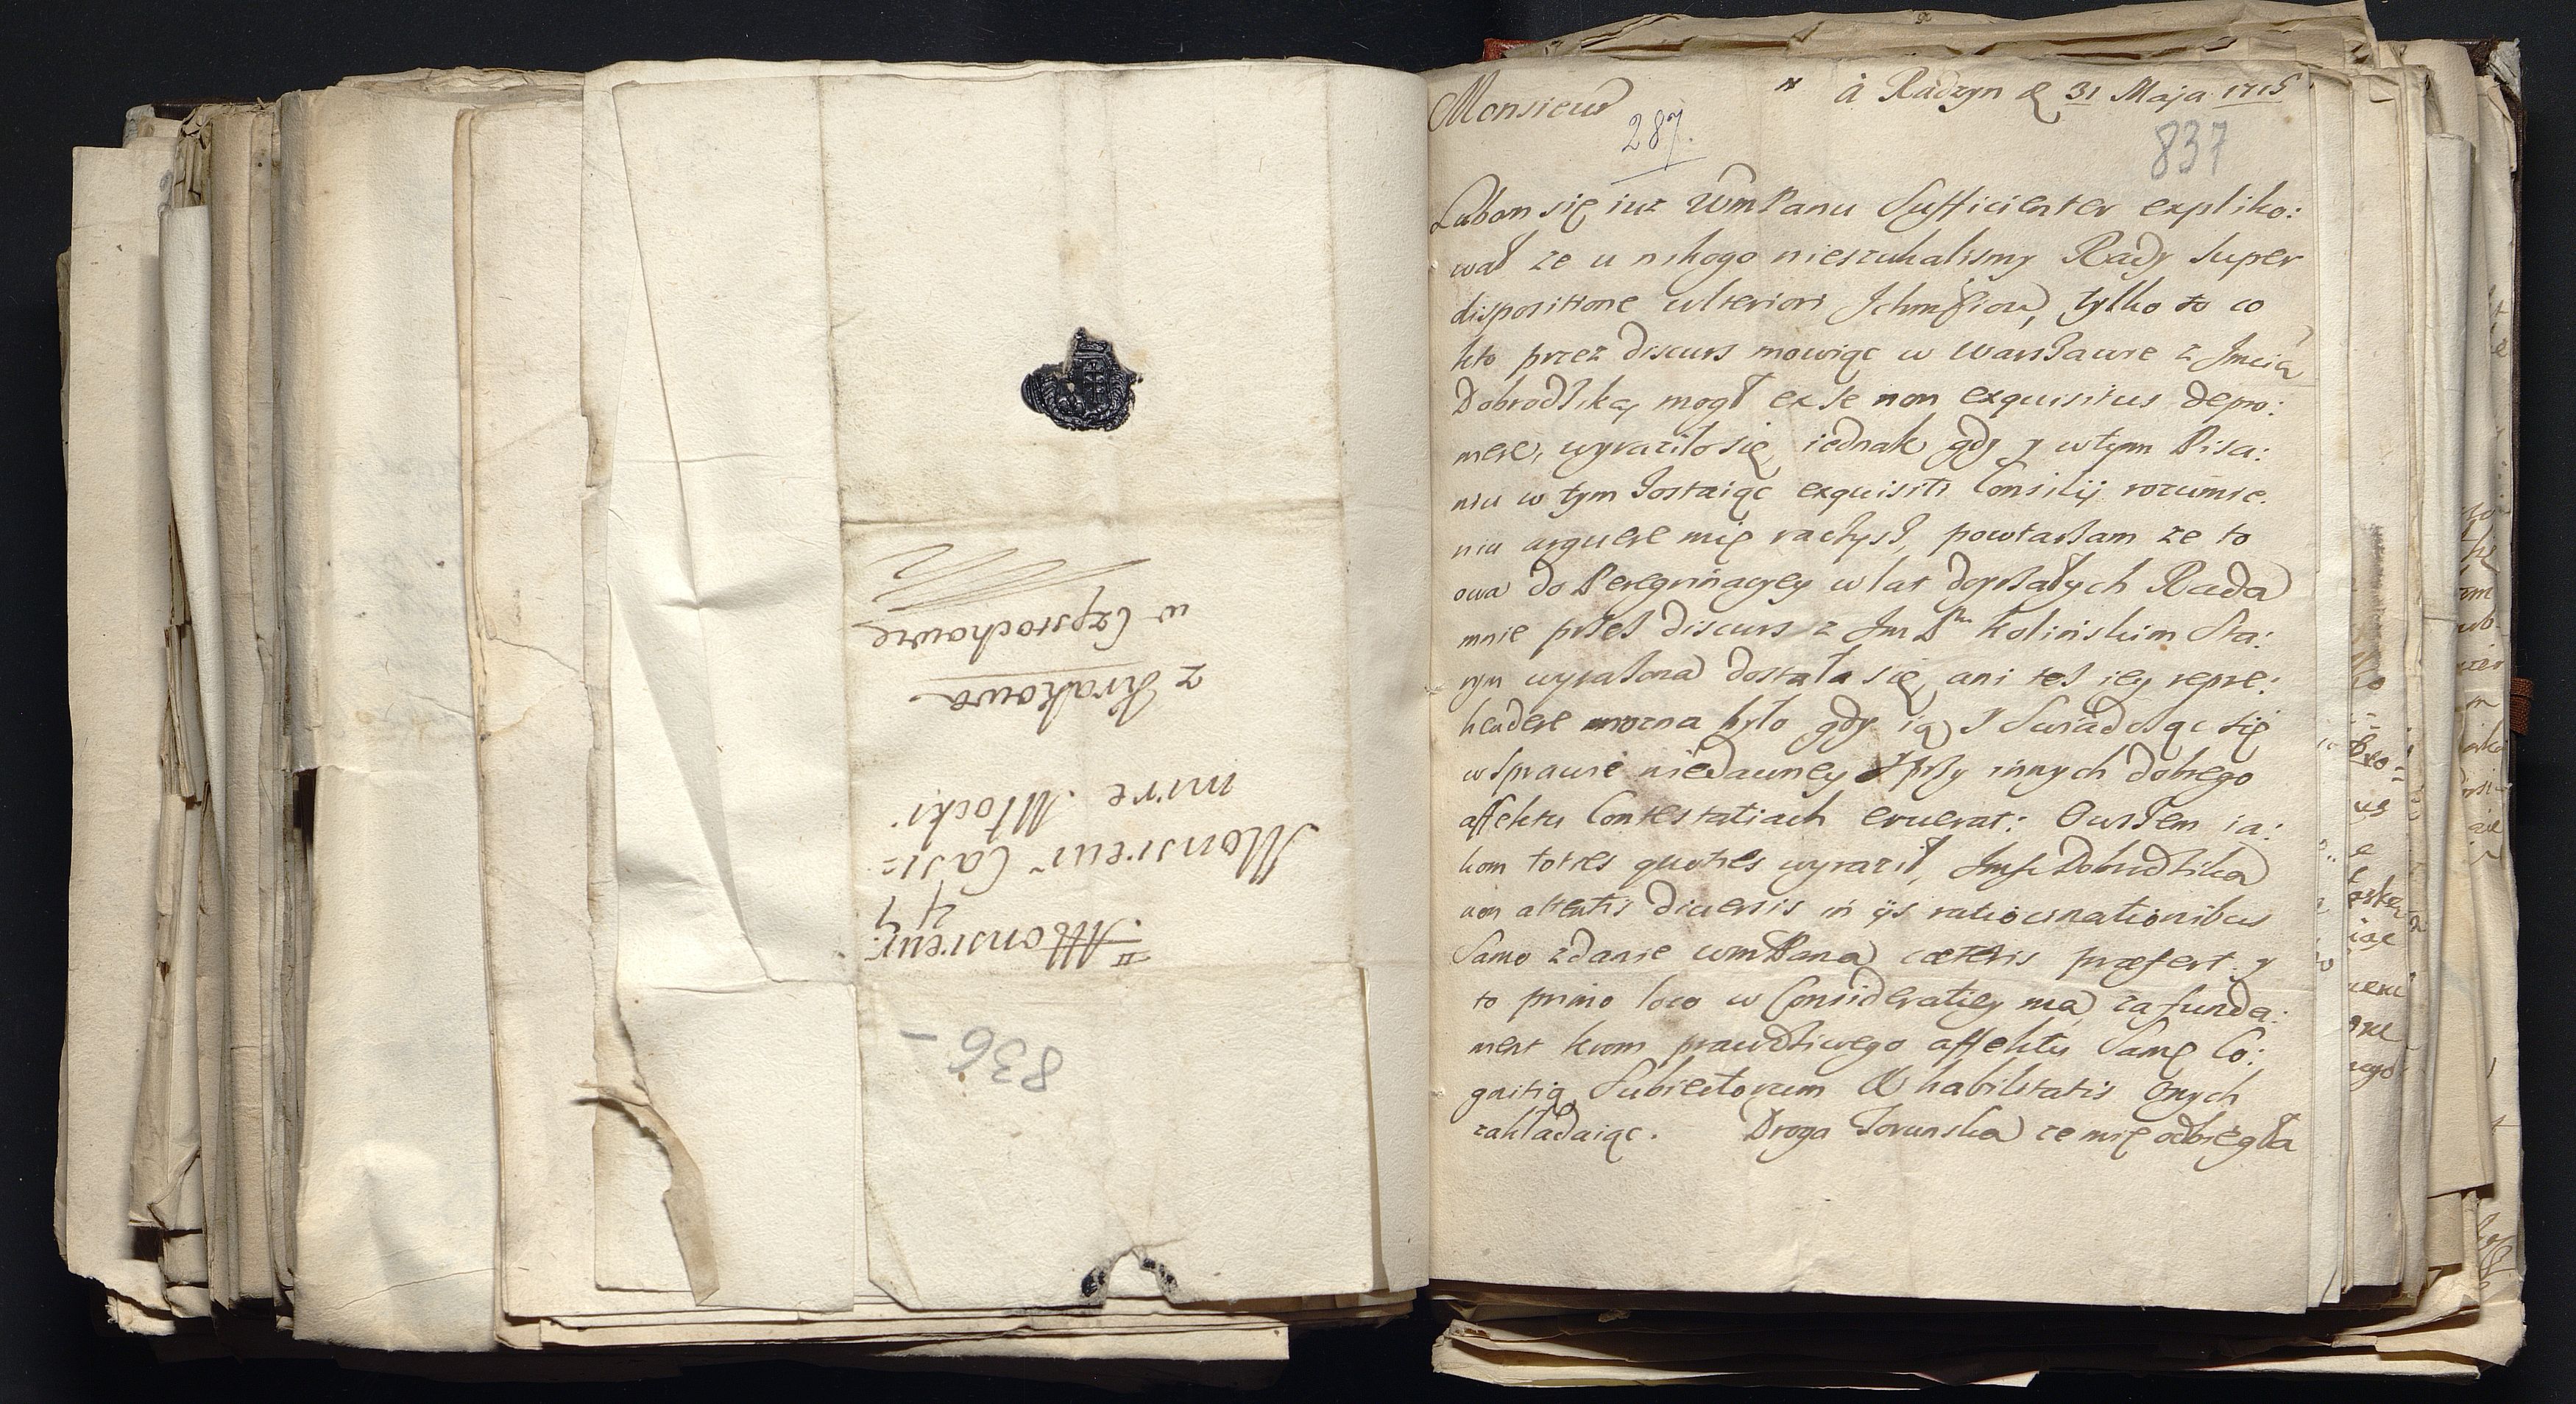 Monsieur
Monsieur Casi=
mire Młocki
z Krakowa
w Częstochowie
836 –
Monsieur
à Radzyn d 31 Maja 1715
287.
837
Lubom się iuz WmPanu Sufficienter expliko:
wał ze u nikogo nieszukalismy Rady super
dispositione ulteriori Ichmściow, tylko to co
kto przez discurs mowiąc w Warszawie z Jmcią
Dobrodziką mogł ex se non exquisitus depro:
mere, wyraziło się, iednak gdy y wtym Pisa:
niu w tym zostaiąc exquisiti Consilij rozumie:
niu arguere mię raczysz, powtarzam ze to
owa do Peregrinacyey w lat doyrzałych Rada
mnie przez discurs z Im Pm Kolinskim Sta:
rym wyrazona dostała się, ani tez iey repre:
hendere mozna było gdy ią z Swiadcząc się
w sprawie niedawney y przy innych dobrego
affektu Contestatiach eruerat: Owszem ia:
kom toties quoties wyraził, Jmść Dobrodzika
non attentis diversis in ijs ratiocinationibus
Samo zdanie wmPana cæteris præfert y
to primo loco w Consideratiey ma, za funda:
ment krom prawdziwego affektu Samę Co:
gnitią Subiectorum & habilitatis onych
zakładaiąc. Droga Torunska ze mię odbiegła